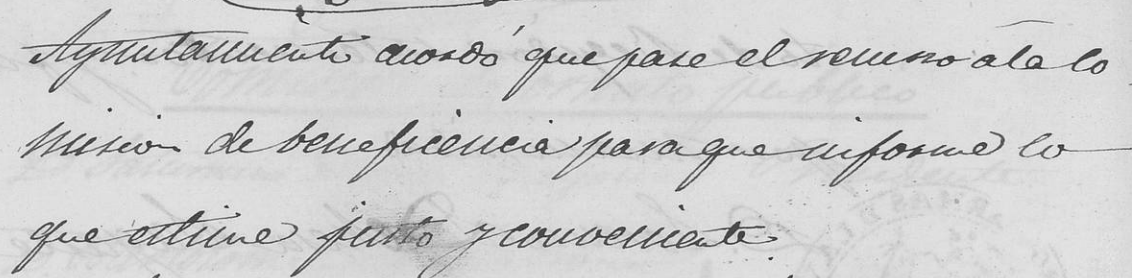 Ayuntamiento acordó que pase el recurso á la co
mision de beneficencia para que informe lo
que estime justo y conveniente.